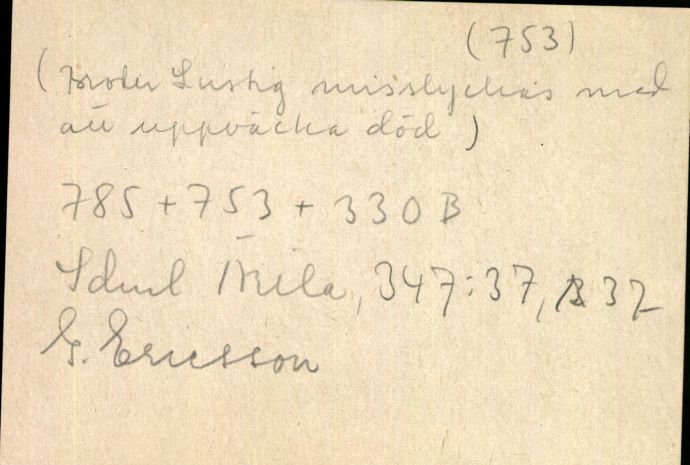 (753)
(Broder Lustig misslyckas med
att uppväcka död)
785 + 753 + 330 B
347:37, 32
G. Ericsson